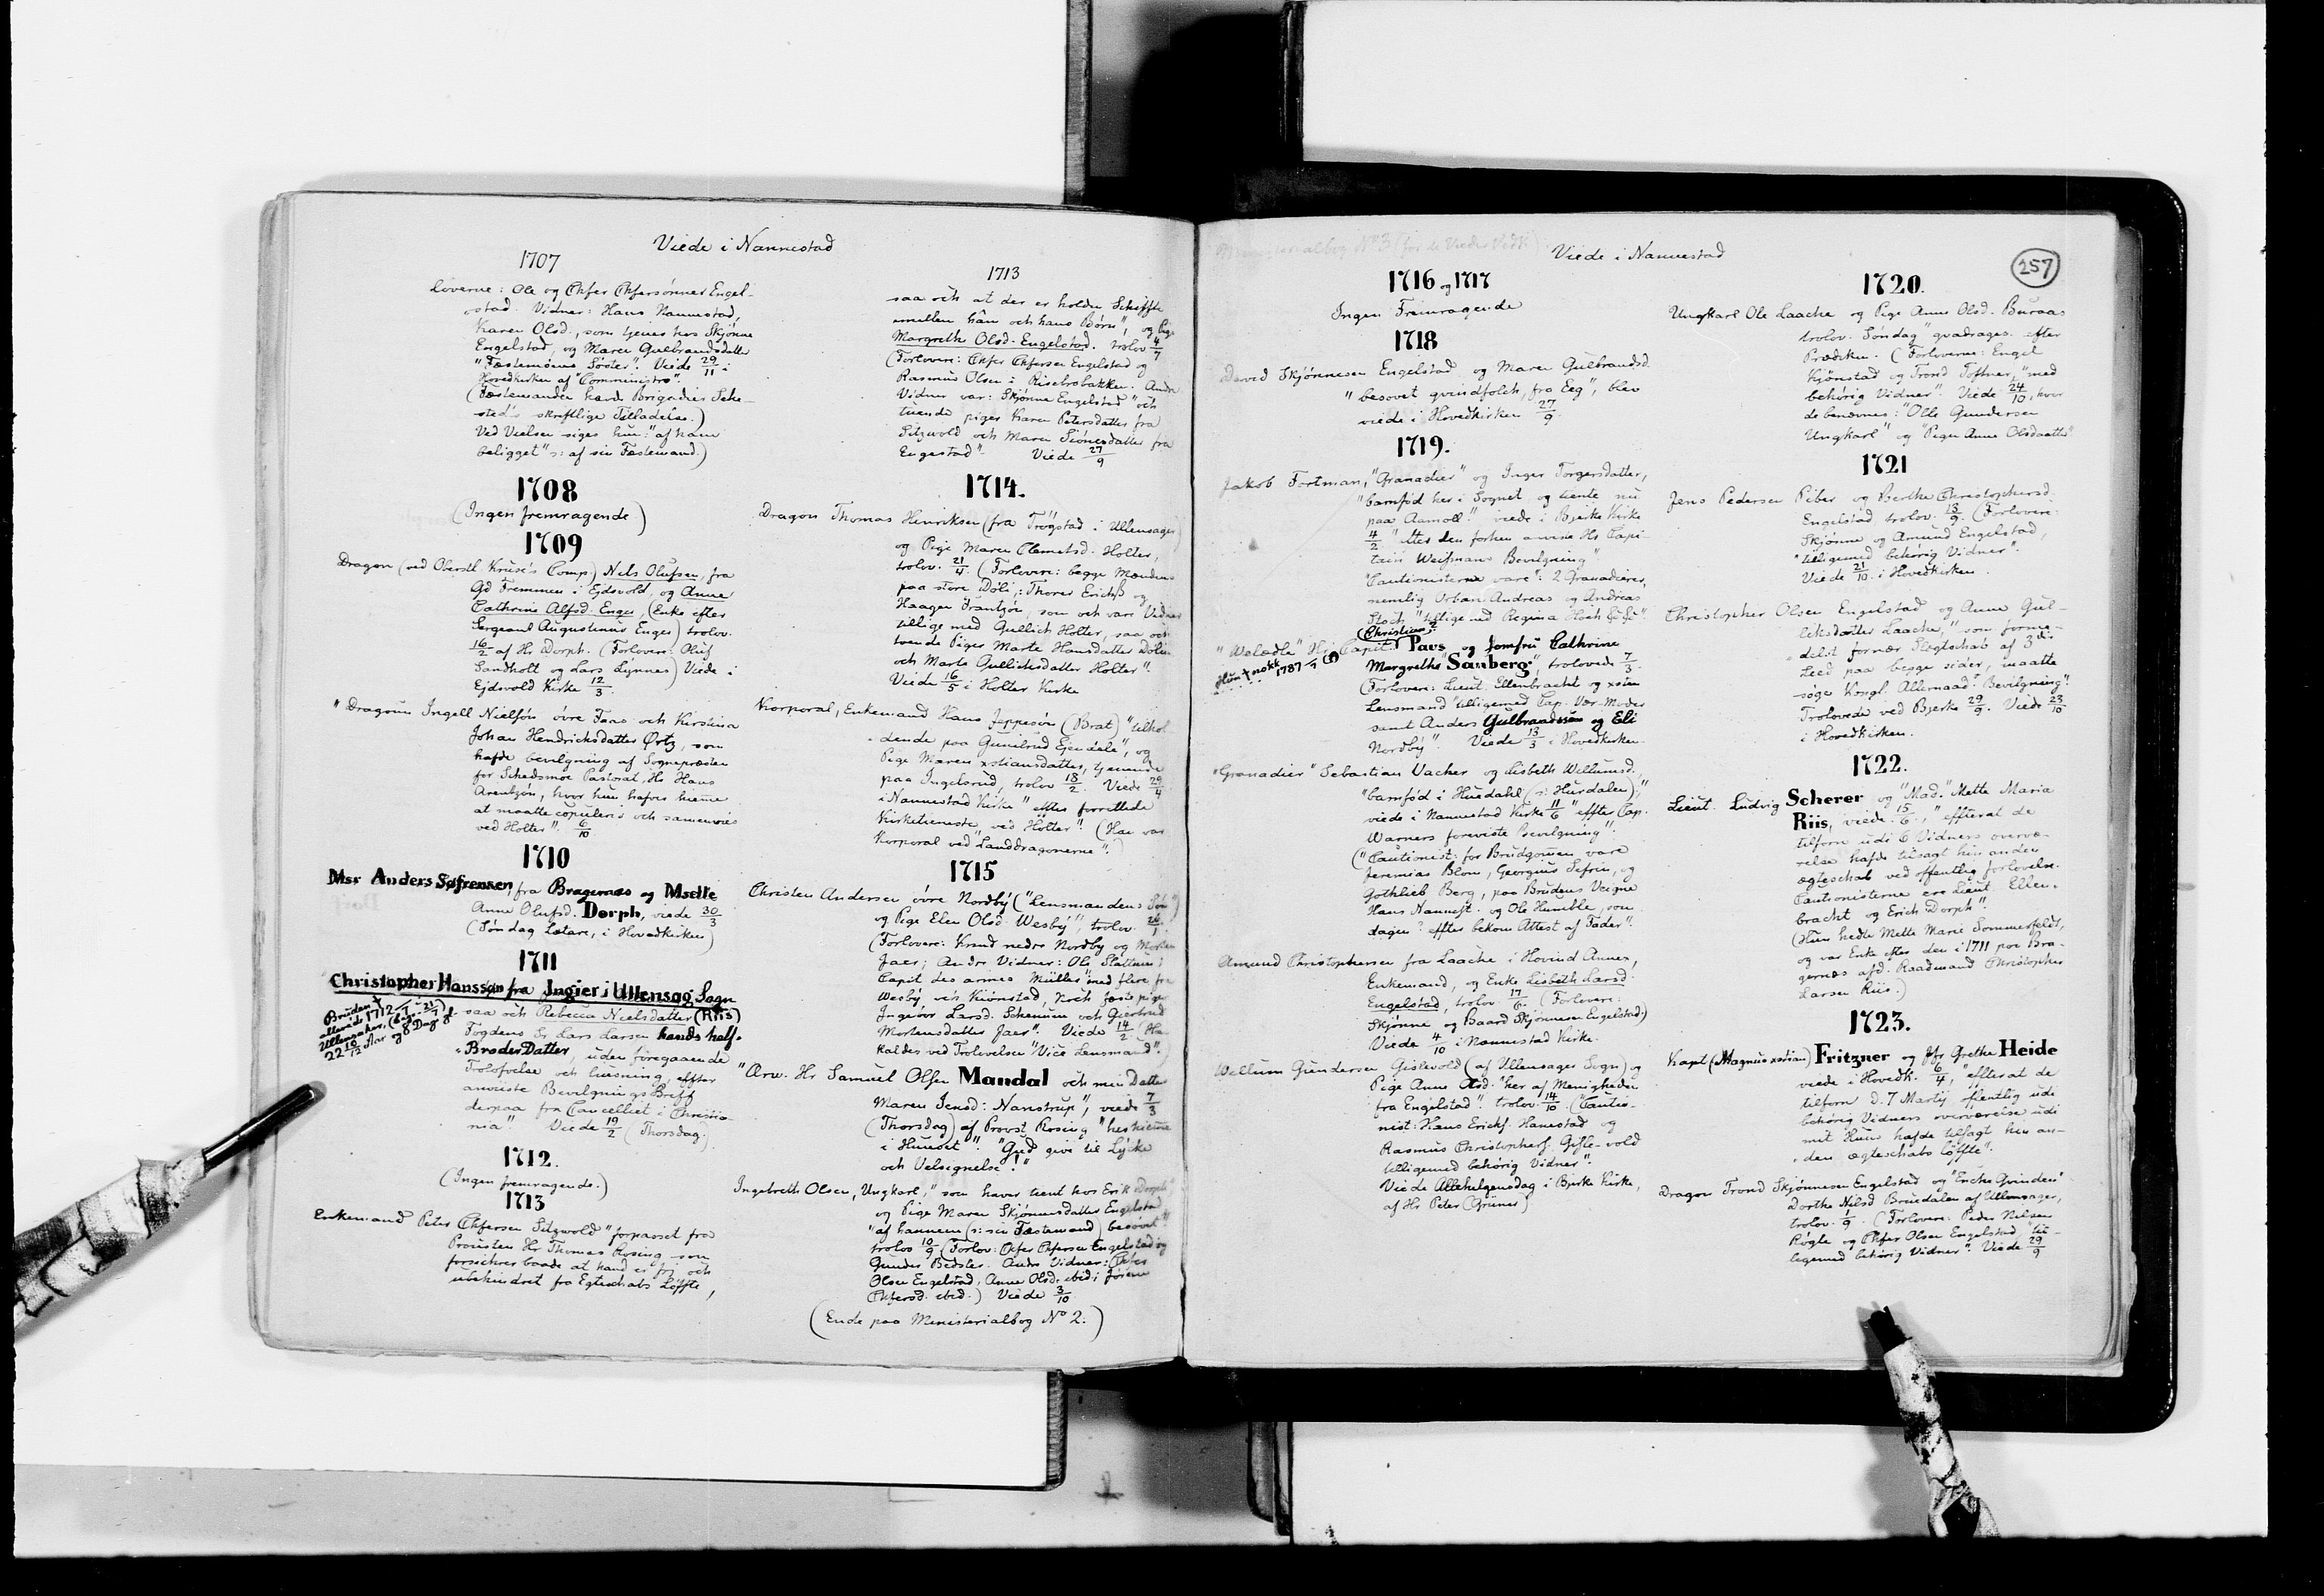 Viede i Nannestad
1707
Loverne: Ole og Chfer Chfersønner Engel-
stad. Vidner: Hans Nannestad,
Karen Olsd., som tjener hos Skjønne
Engelstad, og Maren Gulbrandsdatter
"Fæstemøens Søster". Viede 29/11 i
Hovedkirken af "Comministro".
(Fæstemanden havde Brigadier Sehe-
sted's skriftlige Tilladelse.)
Ved Vielsen siges hun: "af ham
beligget" ɔ: af sin Fæstemand.)
1708
(Ingen fremragende)
1709
Dragon (ved Oberstl. Kruse's Comp.) Nels Olufsen, fra
Gd Fremmen i Ejdsvold, og Anne
Cathrine Alfsd. Enger, (Enke efter
Sergeant Augustinus Enger) trolov.
16/2 af Hr Dorph. (Forlovere: Oluf
Sandholt og Lars Lynnes) Viede i
Ejdsvold Kirke 12/3.
"Dragoun Ingell Nielsøn øvre Faas och Kirstina
Johan Hendrichsdatter Ørtz, som
hafde bevilgning af Sognepræsten
for Schedsmoe Pastorat, Hr Hans
Arentzøn, hvor hun hafver hieme
at maatte copuleris och sammenvies
ved Holter". 6/10
1710
Msr Anders Søfrensen, fra Bragernæs og Mselle
Anne Olufsd. Dorph, viede 30/3
(Søndag Lætare, i Hovedkirken)
1711
Christopher Hanssøn fra Ingier i Ullensag Sogn
saa och Rebecca Nielsdatter (Riis)
Fogdens Sr Lars Larsen hands half-
Broder Datter, uden foregaaende
Trolofvelse och liusning, effter
anviiste Bevilgnings Breff
derpaa fra Cancelliet i Christia-
nia" Viede 19/2 (Thorsdag.)
Bruden †
allerede 1712
Ullensaker, (begr. 21/1)
22 10/12 Aar og 8 Dage gl.
1712.
(Ingen fremragende.)
1713
Enkemand Peter Chfersen Sitzwold "forpasset fra
Prousten Hr Thomas Rosing som
forsichrer baade at hand er frj och
ubehindret fra Egteschabs Løffte,
1713
saa och at der er holden Schiffte
imellem ham och hans Børn", og Pige
Margreth Olsd. Engelstad. trolov 4/7
(Forlovere: Chfer Chfersen Engelstad og
Rasmus Olsen i Risebrobakken. Andre
Vidner var: Skjønne Engelstad "och
tuende piger Karen Petersdatter fra
Sitzwold och Maren Siönesdatter fra
Engestad". Viede 27/9
1714.
Dragon Thomas Henriksen (fra Trøgstad i Ullensager)
og Pige Maren Clemetsd. Holter,
trolov. 21/4. (Forlovere: begge Mændene
paa store Döli: Thorer Erichß og
Haagen Frantzøn, som och vare Vidner
tillige med Gullich Holter, saa och
tvende Piger Marte Hansdatter Dölin
och Marte Gullichsdatter Holter".
Viede 16/5 i Holter Kirke
Korporal, Enkemand Hans Jeppesøn (Brat) "tilhol-
dende paa Gunilrud Ejendele", og
Pige Maren xstiansdatter, tjenende
paa Ingelsrud, trolov 18/2. Viede 29/4
i Nannestad Kirke "effter forrettede
Kirketieneste ved Holter". (Han var
Korporal ved "Landdragonerne".)
1715
Christen Andersen øvre Nordby ("Lensmandens Søn")
og Pige Elen Olsd. Wesby", trolov. 26/1.
(Forlovere: Knud nedre Nordby og Morten
Jaer; Andre Vidner: Ole Slattum,
Capit. des armes Müller "med flere fra
Wesby, och Kiönstad, Noch fæste piger
Ingebor Larsd. Schenuen och Giertrud
Mortensdatter Jaer". Viede 14/2. (Han
kaldes ved Trolovelsen "Vice Lensmand".)
"Ærw. Hr Samuel Olsen Mandal och min Datter
Maren Jensd: Nanstrup", viede 7/3
(Thorsdag) af Provst Rosing "her hieme
i Huuset". "Gud give til Lycke
och Velsignelse!"
Ingebreth Olsen, Ungkarl, "som haver tient hos Erik Dorph"
og Pige Maren Skjønnesdatter Engelstad
"af hannem (ɔ: sin Fæstemand) besovet".
trolov 10/9 (Forlov: Chfer Chfersen Engelstad og
Gunder Bedster. Andre Vidner: Chfer
Olsen Engelstad, Anne Olsd. ibid; Jøran
Chfersd. ibid.) Viede 3/10
(Ende paa Ministerialbog No 2.)
Ministerialbog No 3 (for de Viedes Vedk.)
Viede i Nannestad
257
1716 og 1717
Ingen Fremragende
1718
David Skjønnesen Engelstad og Maren Gulbrandsd.
"besovet qvindfolch, fra Eeg", blev
viede i Hovedkirken 27/9.
1719.
Jakob Fortman, "Granadier" og Inger Torgersdatter,
"barnfød her i Sognet, og tiente nu
paa Aamoll" viede i Bjerke Kirke
4/2 "efter den forhen anviste Hr Capi-
tain Weismans Bevilgning".
"Cautionisterne vare": 2 Granadierer,
nemlig Urban Andreas og Andreas
Stoch "tillige med Regina
"Welædle" Hr Capit. (Christian?) Paus og Jomfru Cathrine
Margrethe Sanberg", trolovede 7/3.
(Forlovere: Lieut. Ellenbracht og xsten
Lensmand "tilligemed Cap. Vær-Moder
samt Anders Gulbrandssøn og Eli
Nordbÿ". Viede 13/3 i Hovedkirken.
Hun † nokk
1787
"Granadier" Sebastian Vacher og Lisbeth Willumsd.,
"barnfød i Huedahl (ɔ: Hurdalen)",
viede i Nannestad Kirke 11/6 "effter Cap.
Warners foreviste Bevilgning".
("Cautionist: for Brudgomen vare
Jeremias Blom, Georgius Sefrin, og
Gothlieb Berg, paa Brudens Vegne
Hans Nannest. og Ole Humble, som
dagen? effter bekom Attest af Fader".
Amund Christophersen fra Laache i Hovind Annex,
Enkemand, og Enke Lisbeth Larsd.
Engelstad, trolov. 17/6. (Forlovere:
Skjønne og Baard Skjønnesen Engelstad.)
Viede 4/10 i Nannestad Kirke.
Willum Gundersen Gislevold (af Ullensager Sogn) og
Pige Anne Olsd. "her af Menigheden
fra Engelstad". trolov. 14/10. (Cautio-
nist: Hans Erichs. Hanestad og
Rasmus Christophers. Gisle-vold
tilligemed behörig Vidner".
Viede Allehelgensdag i Bjerke Kirke,
af Hr Peter (Grüner)
1720.
Ungkarl Ole Laache og Pige Anne Olsd. Buraas
trolov. Søndag "qvadrages. efter
Prædiken. (Forloverne: Engel
Kjönstad og Trond Toftner, "med
behörig Vidner". Viede 24/10, hvor
de benævnes: "Olle Gundersen
Ungkarl" og "Pigen Anne Olsdaatter".
1721
Jens Pedersen Piber og Berthe Christophersd.
Engelstad trolov. 13/9. (Forlovere:
Skjønne og Amund Engelstad,
"tilligemed behörig Vidner".
Viede 21/10 i Hovedkirken.
Christopher Olsen Engelstad og Anne Gul-
liksdatter Laache, "som forme-
delst fornær Slegtschab af 3die
Leed paa begge sider, maatte
søge Kongl. Allernaad. Bevilgning".
Trolovede ved Bjerke 29/9. Viede 23/10
i Hovedkirken.
1722.
Lieut. Ludvig Scherer og "Mad." Mette Maria
Riis, viede 15/6, "effterat de
tilforn udi 6 Vidners overvæ-
relse hafde tilsagt hin anden
ægteschab ved offentlig forlovelse.
Cautionisterne ere Lieut. Ellen-
bracht og Erich Dorph".
(Hun hedte Mette Marie Sommerfeldt,
og var Enke efter den i 1711 paa Bra-
gernæs afd. Raadmand Christopher
Larsen Riis.)
1723.
Kapt (Magnus xstian) Fritzner og Jfr Grethe Heide
viede i Hovedk. 6/4, "effterat de
tilforn d. 7 Martÿ offentlig udi
behörig Vidners overværelse udi
mit Huus hafde tilsagt hin an-
den ægteschabs løffte".
Dragon Trond Skjønnesen Engelstad og "Encke Qvinden"
Dorthe Nilsd Bruedalen af Ullensager,
trolov. 1/9. (Forlovere: Peder Nilsen
Røgle og Chfer Olsen Engelstad "til-
legemed behörig Vidner". Viede 29/9